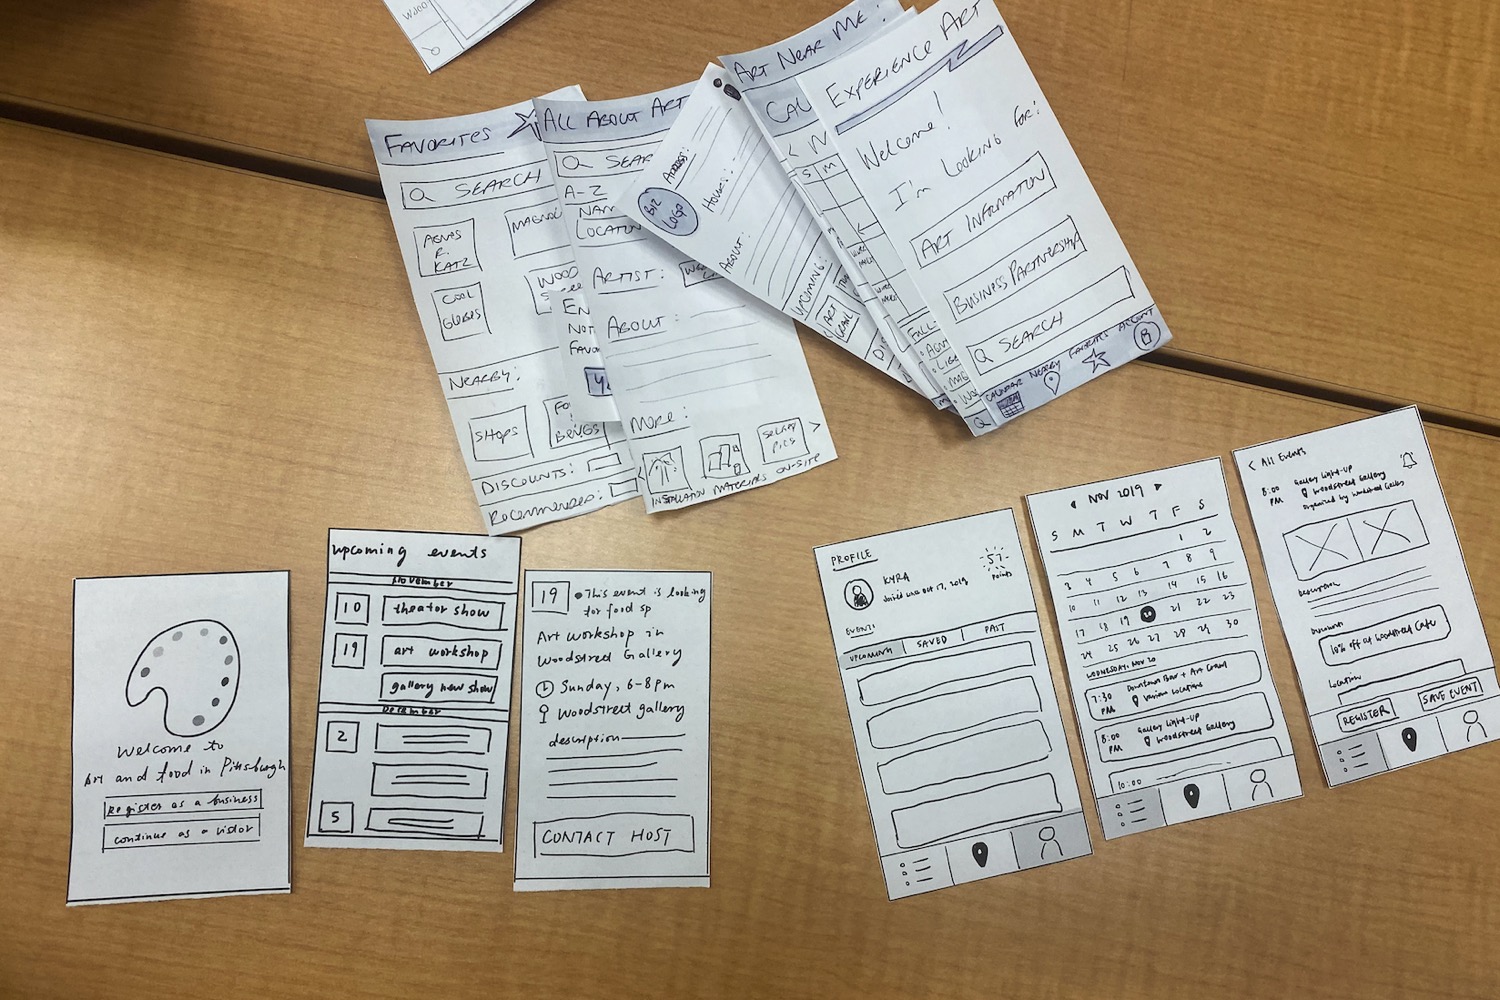 FAVORITES
SEARCH
AGNES
R.
KATZ
COOL
GLOBES
NEARBY:
SHOPS
DISCOUNTS:
RECOMMENDED:
ALL ABOUT ART
A-Z
ARTIST:
ABOUT:
MORE:
INSTALLATION MATERIALS ON-SITE
BIZ
LOGO
ADDRESS:
HOURS:
ABOUT:
UPCOMING:
ART
CRAWL
ART NEAR ME:
CAL
S M
EXPERIENCE ART
Welcome!
I'm Looking For:
ART INFORMATION
BUSINESS PARTNERSHIP
SEARCH
CALENDAR NEARBY FAVORITES ACCOUNT
Welcome to
Art and food in Pittsburgh
Register as a business
continue as a vistor
upcoming events
November
10 theator show
19 art workshop
gallery new show
December
2
5
19 This event is looking
for food sp
Art workshop in
Woodstreet Gallery
Sunday, 6-8pm
Woodstreet gallery
description
CONTACT HOST
PROFILE
KYRA
57
points
EVENTS
UPCOMING SAVED PAST
NOV 2019
S M T W T F S
1 2
3 4 5 6 7 8 9
10 11 12 13 14 15 16
17 18 19 20 21 22 23
24 25 26 27 28 29 30
WEDNESDAY, NOV 20
7:30 Downtown Beer + Art Crawl
PM Various Locations
8:00 Gallery Light-up
PM Woodstreet Gallery
10:00
< All Events
8:00 Gallery Light-up
PM Woodstreet Gallery
Organized by Woodstreet Gallery
Description
Discounts
10% off at Woodstreet Cafe
Location
REGISTER SAVE EVENT